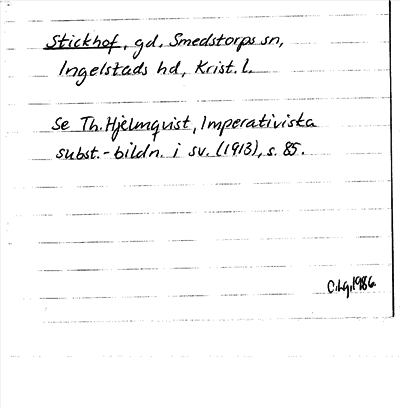 Stickhof, gd, Smedstorps sn,
Ingelstads hd, Krist. l.
Se Th. Hjelmqvist, Imperativiska
subst.-bildn. i sv. (1913), s. 85.
1986